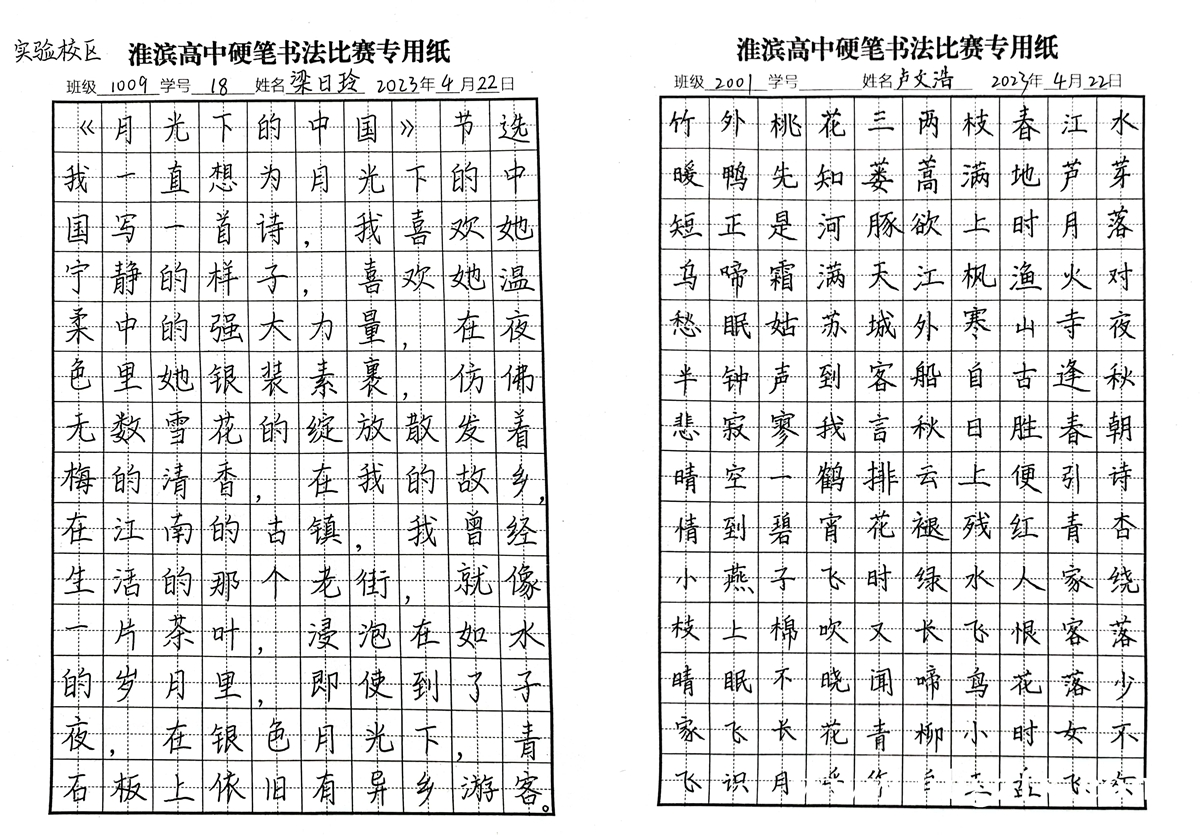 实验校区
淮滨高中硬笔书法比赛专用纸
班级 1009 学号 18 姓名 梁日玲 2023年 4 月 22日
《月光下的中国》节选
我一直想为月光下的中
国写一首诗，我喜欢她
宁静的样子，喜欢她温
柔中的强大力量，在夜
色里她银装素裹，仿佛
无数雪花的绽放散发着
梅的清香，在我的故乡，
在江南的古镇，我曾经
生活的那个老街，就像
一片茶叶，浸泡在如水
的岁月里，即使到了子
夜，在银色月光下，青
石板上依旧有异乡游客。
淮滨高中硬笔书法比赛专用纸
班级 2001 学号 姓名 卢文浩 2023年 4 月 22日
竹外桃花三两枝春江水
暖鸭先知蒌蒿满地芦芽
短正是河豚欲上时月落
乌啼霜满天江枫渔火对
愁眠姑苏城外寒山寺夜
半钟声到客船自古逢秋
悲寂寥我言秋日胜春朝
晴空一鹤排云上便引诗
情到碧宵花褪残红青杏
小燕子飞时绿水人家绕
枝上棉吹又长飞恨客落
晴眠不晓闻啼鸟花落少
家飞长花青柳小时女不
飞识月